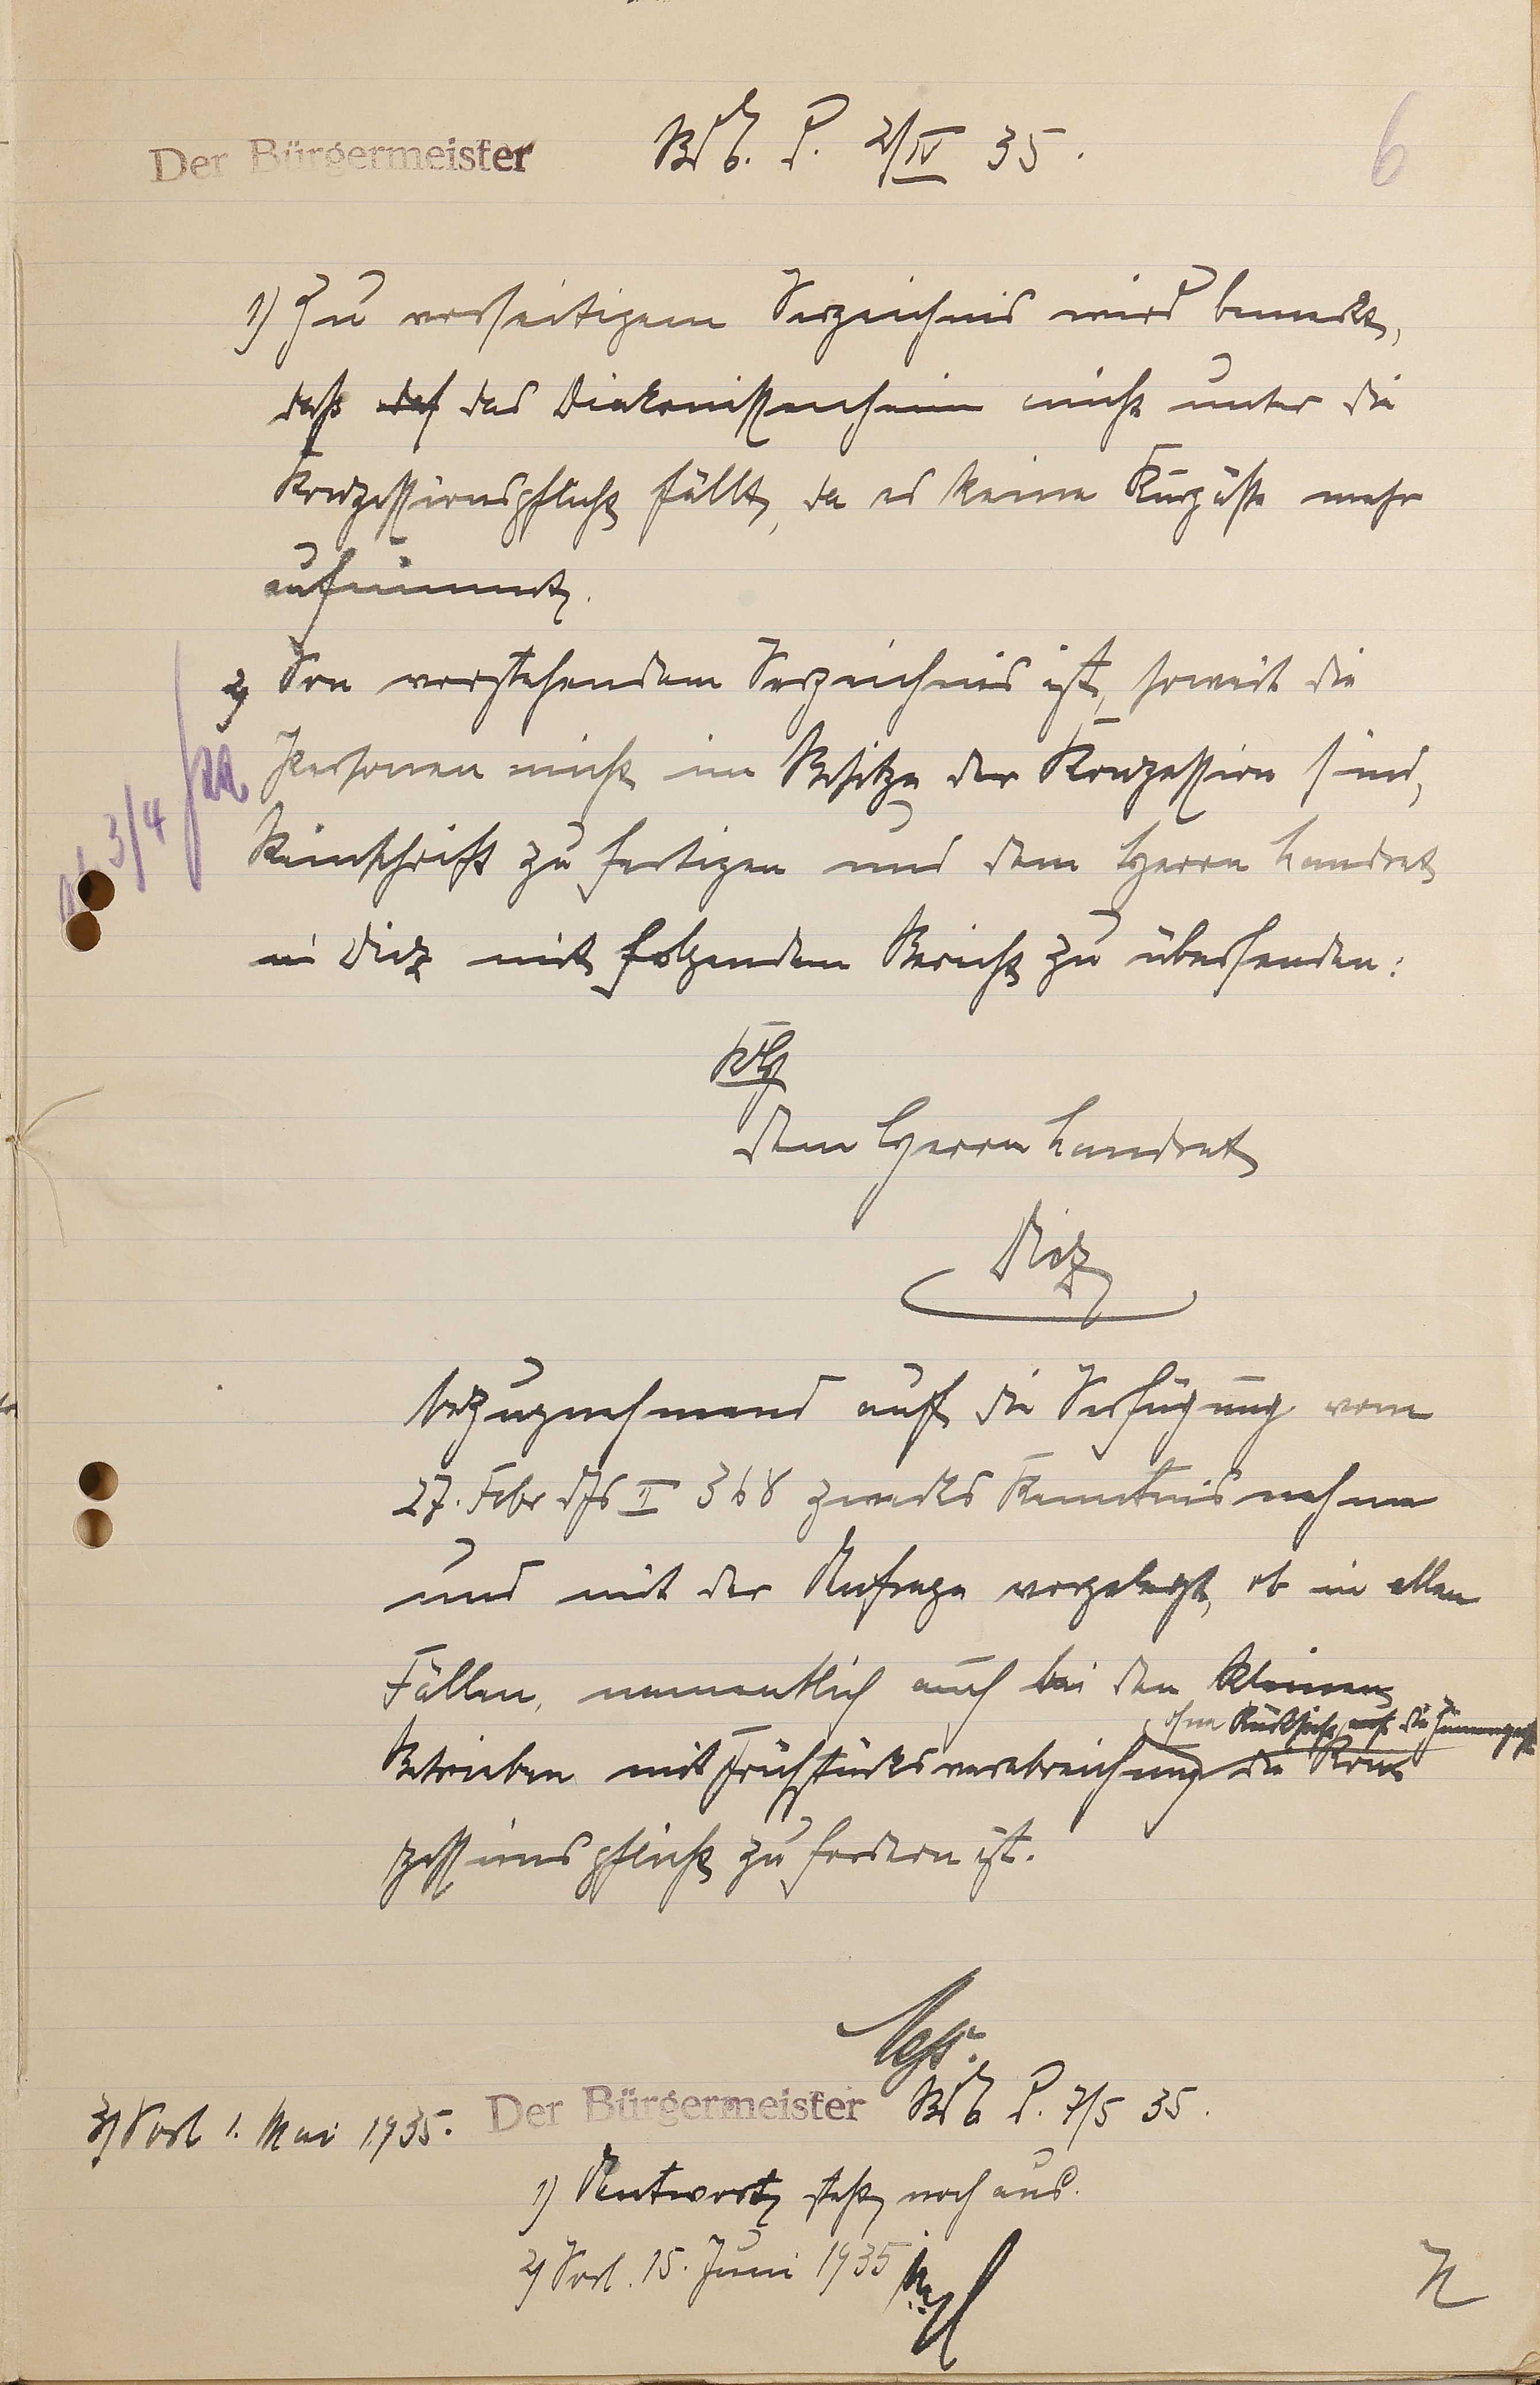 Der Bürgermeister
2/IV 35.
6
1) Zu vorseitigem Verzeichnis wird bemerkt,
daß das Diakonissenheim nicht unter die
Konzessionspflicht fällt, da es keine Kurgäste mehr
aufnimmt.
2) Von vorstehendem Verzeichnis ist, soweit die
Personen nicht im Besitze der Konzession sind,
Reinschrift zu fertigen und dem Herrn Landrat
in Diez mit folgendem Bericht zu übersenden:
ab 3/4
dem Herrn Landrat
Diez
bezugnehmend auf die Verfügung vom
27. Febr ds Js II 368 zwecks Kenntnisnahme
und mit der Anfrage vorgelegt, ob in allen
Fällen, namentlich auch bei den kleinen
ohne Rücksicht auf die
Betrieben mit Frühstücksverabreichung die Kon
zessionspflicht zu fordern ist.
3) Vorl 1. Mai 1935.
Der Bürgermeister
7/5 35.
1) Antwort steht noch aus.
2) Vorl. 15. Juni 1935